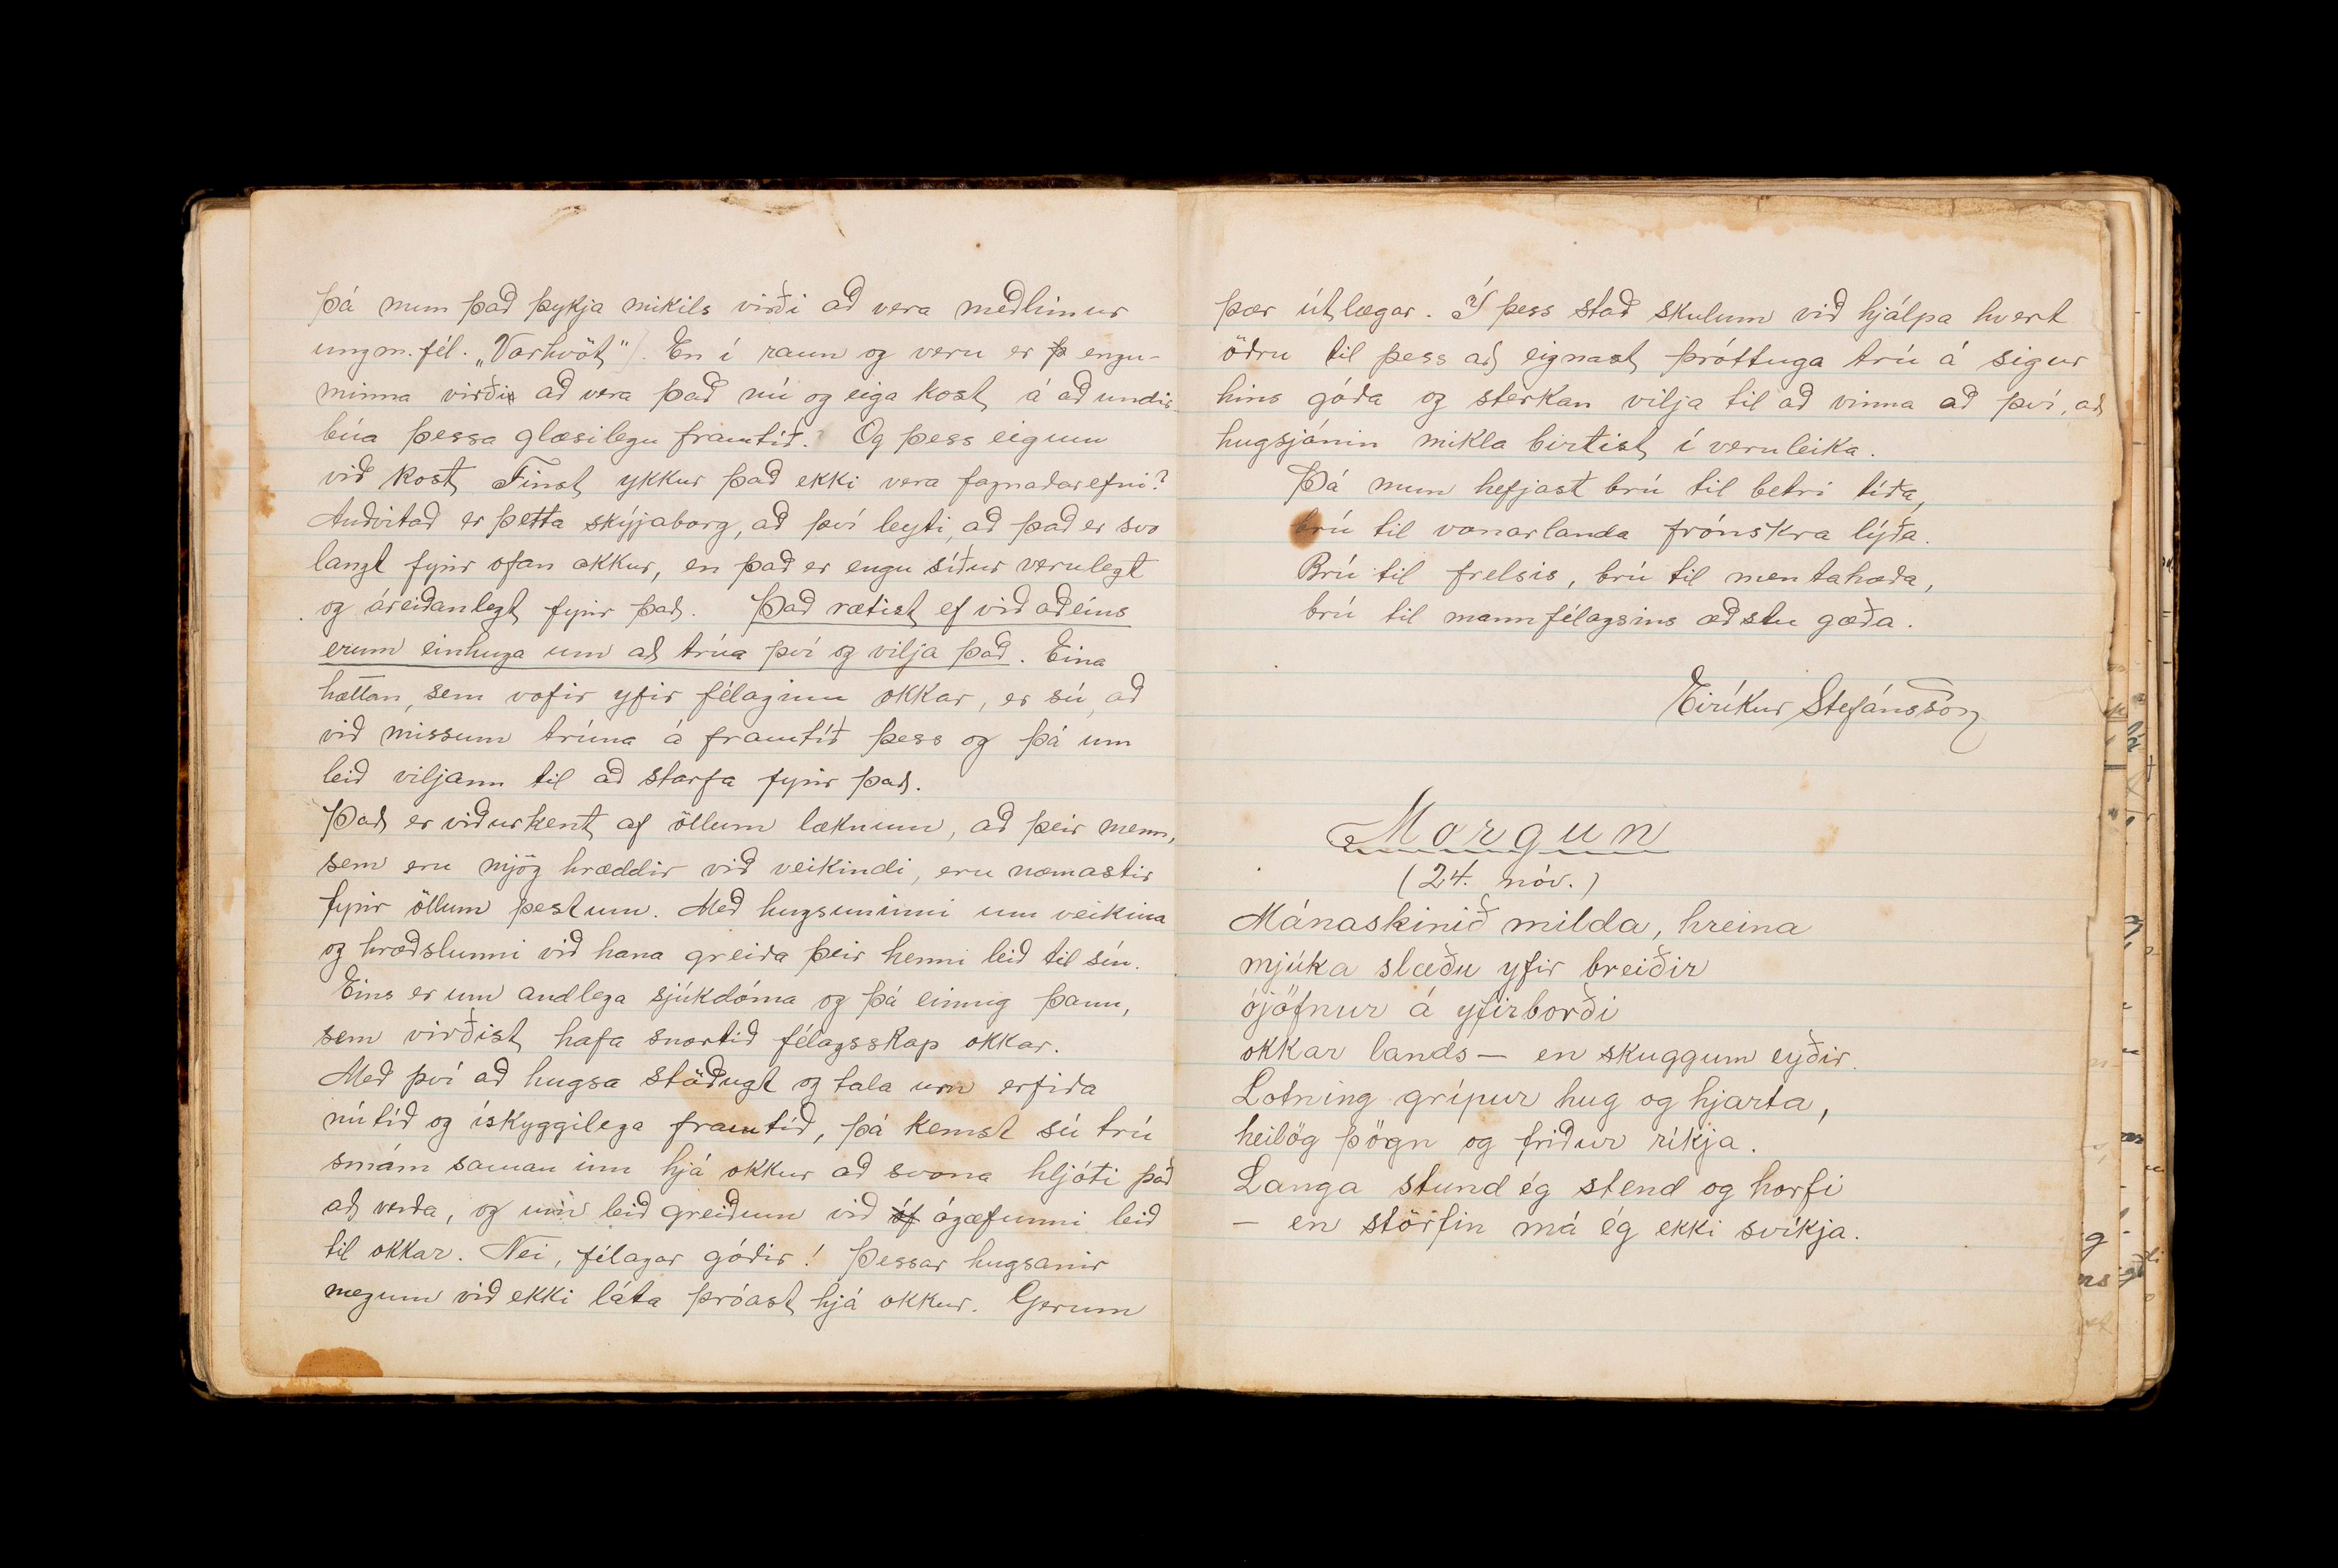 Þá mun það þykja mikils virði að vera meðlimur
ungm.fél. „Vorhvöt"). En í raun og veru er þ engu-
minna virði að vera það nú og eiga kost á að undir-
búa þessa glæsilegu framtíð. Og þess eigum
við kost, Finst ykkur það ekki vera fagnaðarefni?
Auðvitað er þetta skýjaborg, að því leyti, að það er svo
langt fyrir ofan okkur, en það er engu síður verulegt
og áreiðanlegt fyrir það. Það rætist ef við aðeins
erum einhuga um að trúa því og vilja það. Eina
hættan, sem vofir yfir félaginu okkar, er sú, að
við missum trúna á framtíð þess og þá um
leið viljann til að starfa fyrir það.
Það er viðurkent af öllum læknum, að þeir menn,
sem eru mjög hræddir við veikindi, eru næmastir
fyrir öllum pestum. Með hugsuninni um veikina
og hræðslunni við hana greiða þeir henni leið til sín.
Eins er um andlega sjúkdóma og þá einnig þann,
sem virðist hafa snortið félagsskap okkar.
Með því að hugsa stöðugt og tala um erfiða
nútíð og ískyggilega framtíð, þá kemst sú trú
smám saman inn hjá okkur að svona hljóti það
að verða, og um leið greiðum við óf ógæfunni leið
til okkar. Nei, félagar góðir! Þessar hugsanir
megum við ekki láta þróast hjá okkur. Gerum
þær útlægar. Í þess stað skulum við hjálpa hvert
öðru til þess að eignast þróttuga trú á sigur
hins góða og sterkan vilja til að vinna að því, að
hugsjónin mikla birtist í veruleika.
Þá mun hefjast brú til betri tíða,
brú til vonarlanda frónskra lýða.
Brú til frelsis, brú til mentahæða,
brú til mannfélagsins æðstu gæða.
Eiríkur Stefánsson
Morgun
(24. nóv.)
Mánaskinið milda, hreina
mjúka slæðu yfir breiðir
ójöfnur á yfirborði
okkar lands — en skuggum eyðir.
Lotning grípur hug og hjarta,
heilög þögn og friður ríkja.
Langa stund ég stend og horfi
— en störfin má ég ekki svíkja.